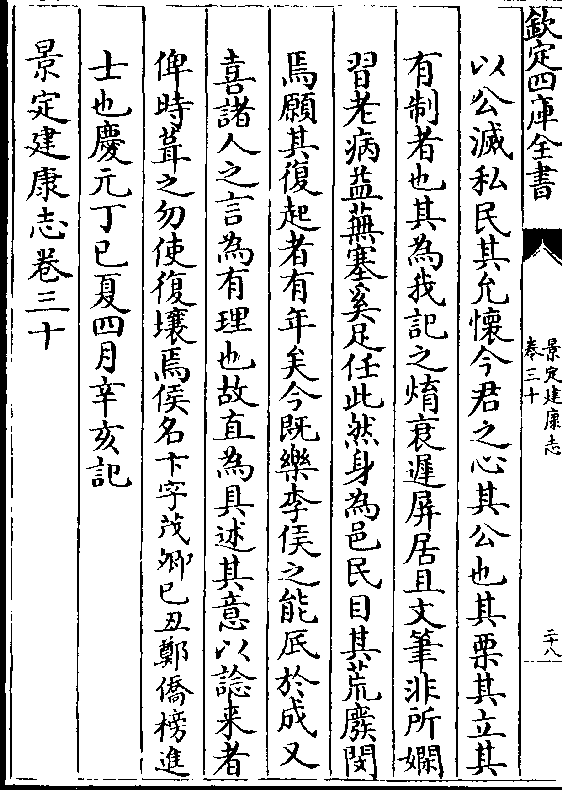 欽定四庫全書
景定建康志
卷三十
三十八
以公滅私民其允懷今君之心其公也其栗其立其
有制者也其為我記之焴衰遲屏居且文筆非所嫻
習老病益蕪塞奚足任此然身為邑民目其荒廢閔
焉願其復起者有年矣今既樂李侯之能底於成又
喜諸人之言為有理也故直為具述其意以諗来者
俾時葺之勿使復壊焉侯名卞字茂卿己丑鄭僑榜進
士也慶元丁巳夏四月辛亥記
景定建康志卷三十